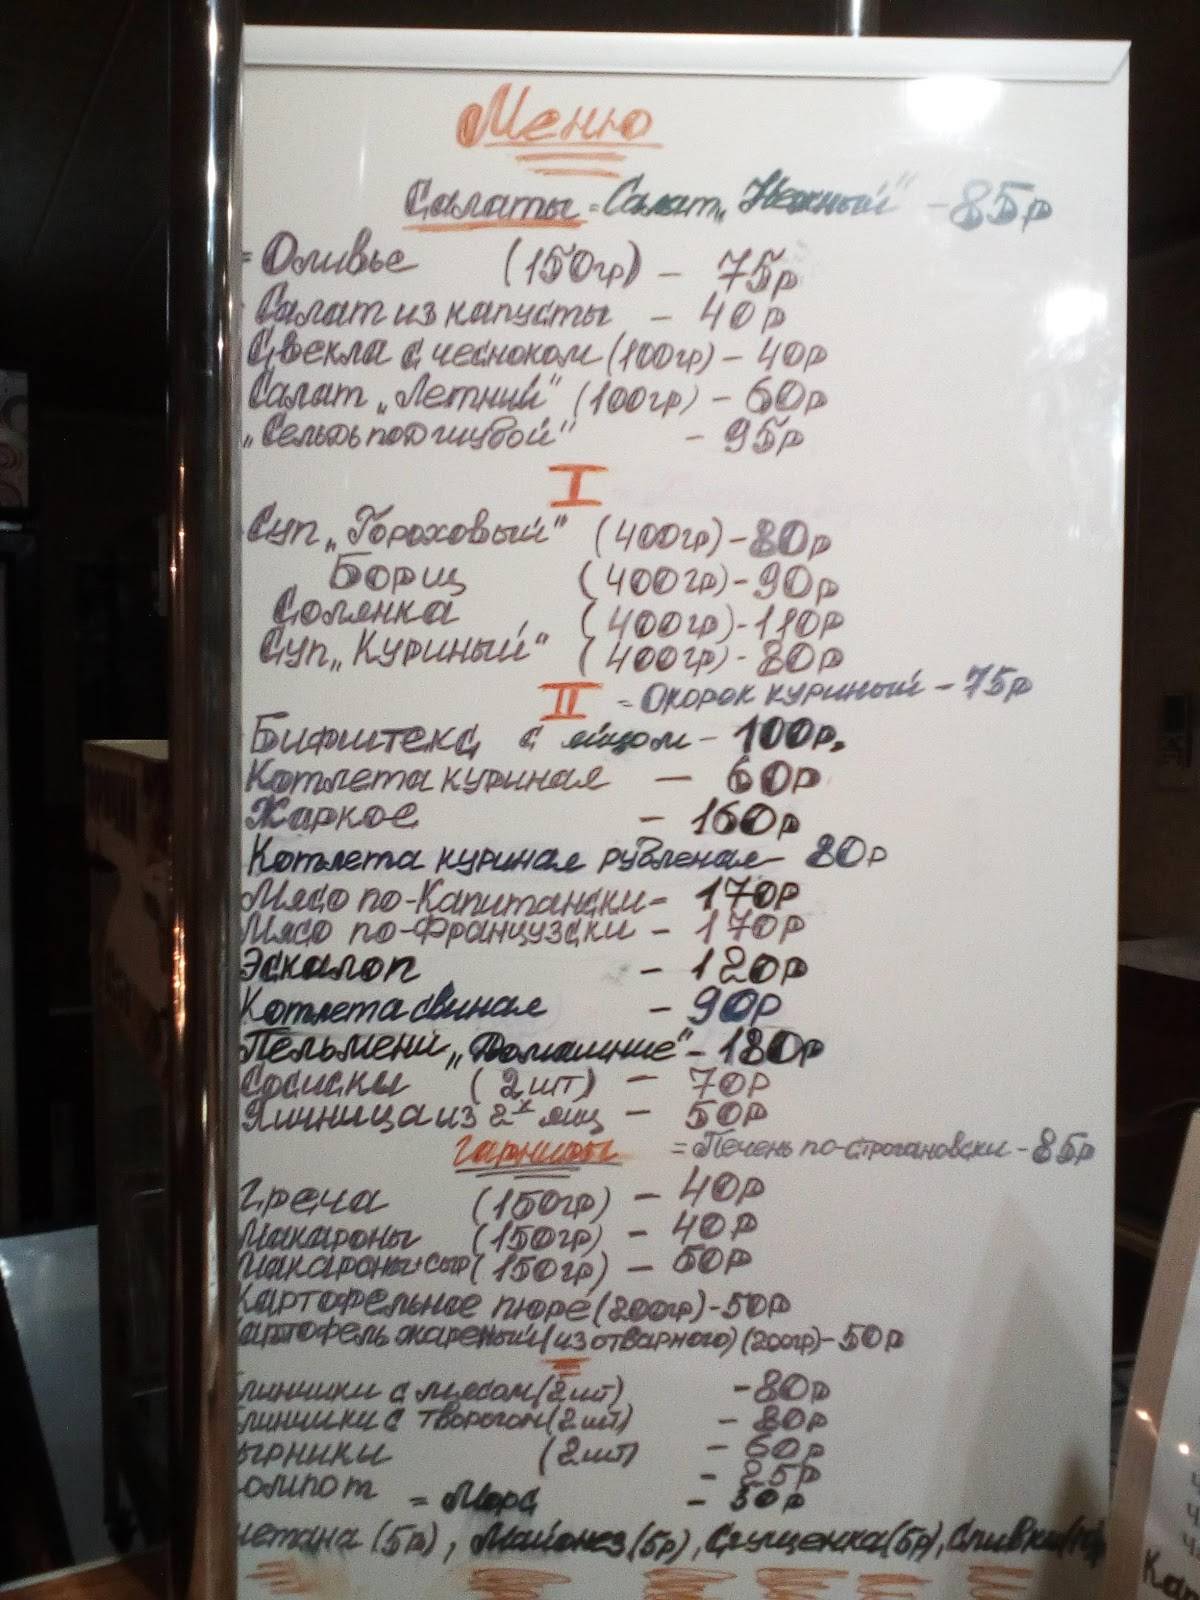 Меню
Салаты = Салат „Нежный" - 85р
= Оливье (150гр) - 75р
Салат из капусты - 40р
Свекла с чесноком (100гр) - 40р
Салат „Летний" (100гр) - 60р
„Сельдь под шубой" - 95р
I
Суп „Гороховый" (400гр) - 80р
Борщ (400гр) - 90р
Солянка (400гр) - 110р
Суп „Куриный" (400гр) - 80р
II = Окорок куриный - 75р
Бифштекс с яйцом - 100р.
Котлета куриная - 60р
Жаркое - 160р
Котлета куриная рубленая - 80р
Мясо по-Капитански - 170р
Мясо по-Французски - 170р
Эскалоп - 120р
Котлета свиная - 90р
Пельмени „Домашние" - 180р
Сосиски (2шт) - 70р
Яичница из 2х яиц - 50р
Гарниры = Печень по-строгановски - 85р
Греча (150гр) - 40р
Макароны (150гр) - 40р
Макароны+сыр (150гр) - 60р
Картофельное пюре (200гр) - 50р
артофель жареный (из отварного) (200гр) - 50р
линчики с мясом (2шт) - 80р
линчики с творогом (2шт) - 80р
ырники (2шт) - 60р
омпот - 25р
= Морс - 30р
метана (5р), Майонез (5р), Сгущенка (5р), Сливки